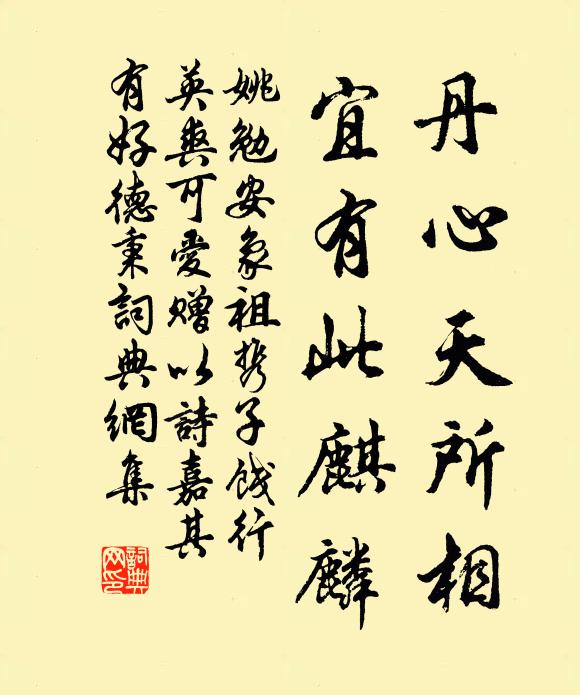 丹心天所相
宜有此麒麟
姚勉安象祖携子饯行
英爽可愛赠以詩嘉其
有好德秉詞典網集
詞典
网印